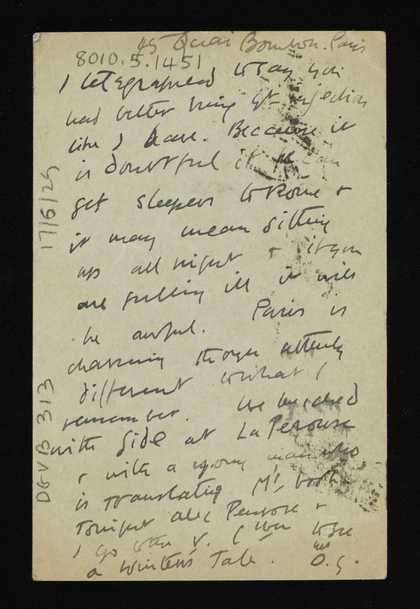 45 Quai Bourbon. Paris
8010.5.1451
I telegraphed to say you
had better bring yr injection
like I have. Because it
is doubtful if we can
get sleepers to Rome &
it may mean sitting
up all night & if you
are feeling ill it will
be awful. Paris is
charming though utterly
different to what I
remember. We lunched
with Gide at La Perouse
& with a young man who
is translating M's book
Tonight Alec Penrose &
I go to the V. C to see
a Winter's Tale.
D.G.
17/5/25
DGVB 313